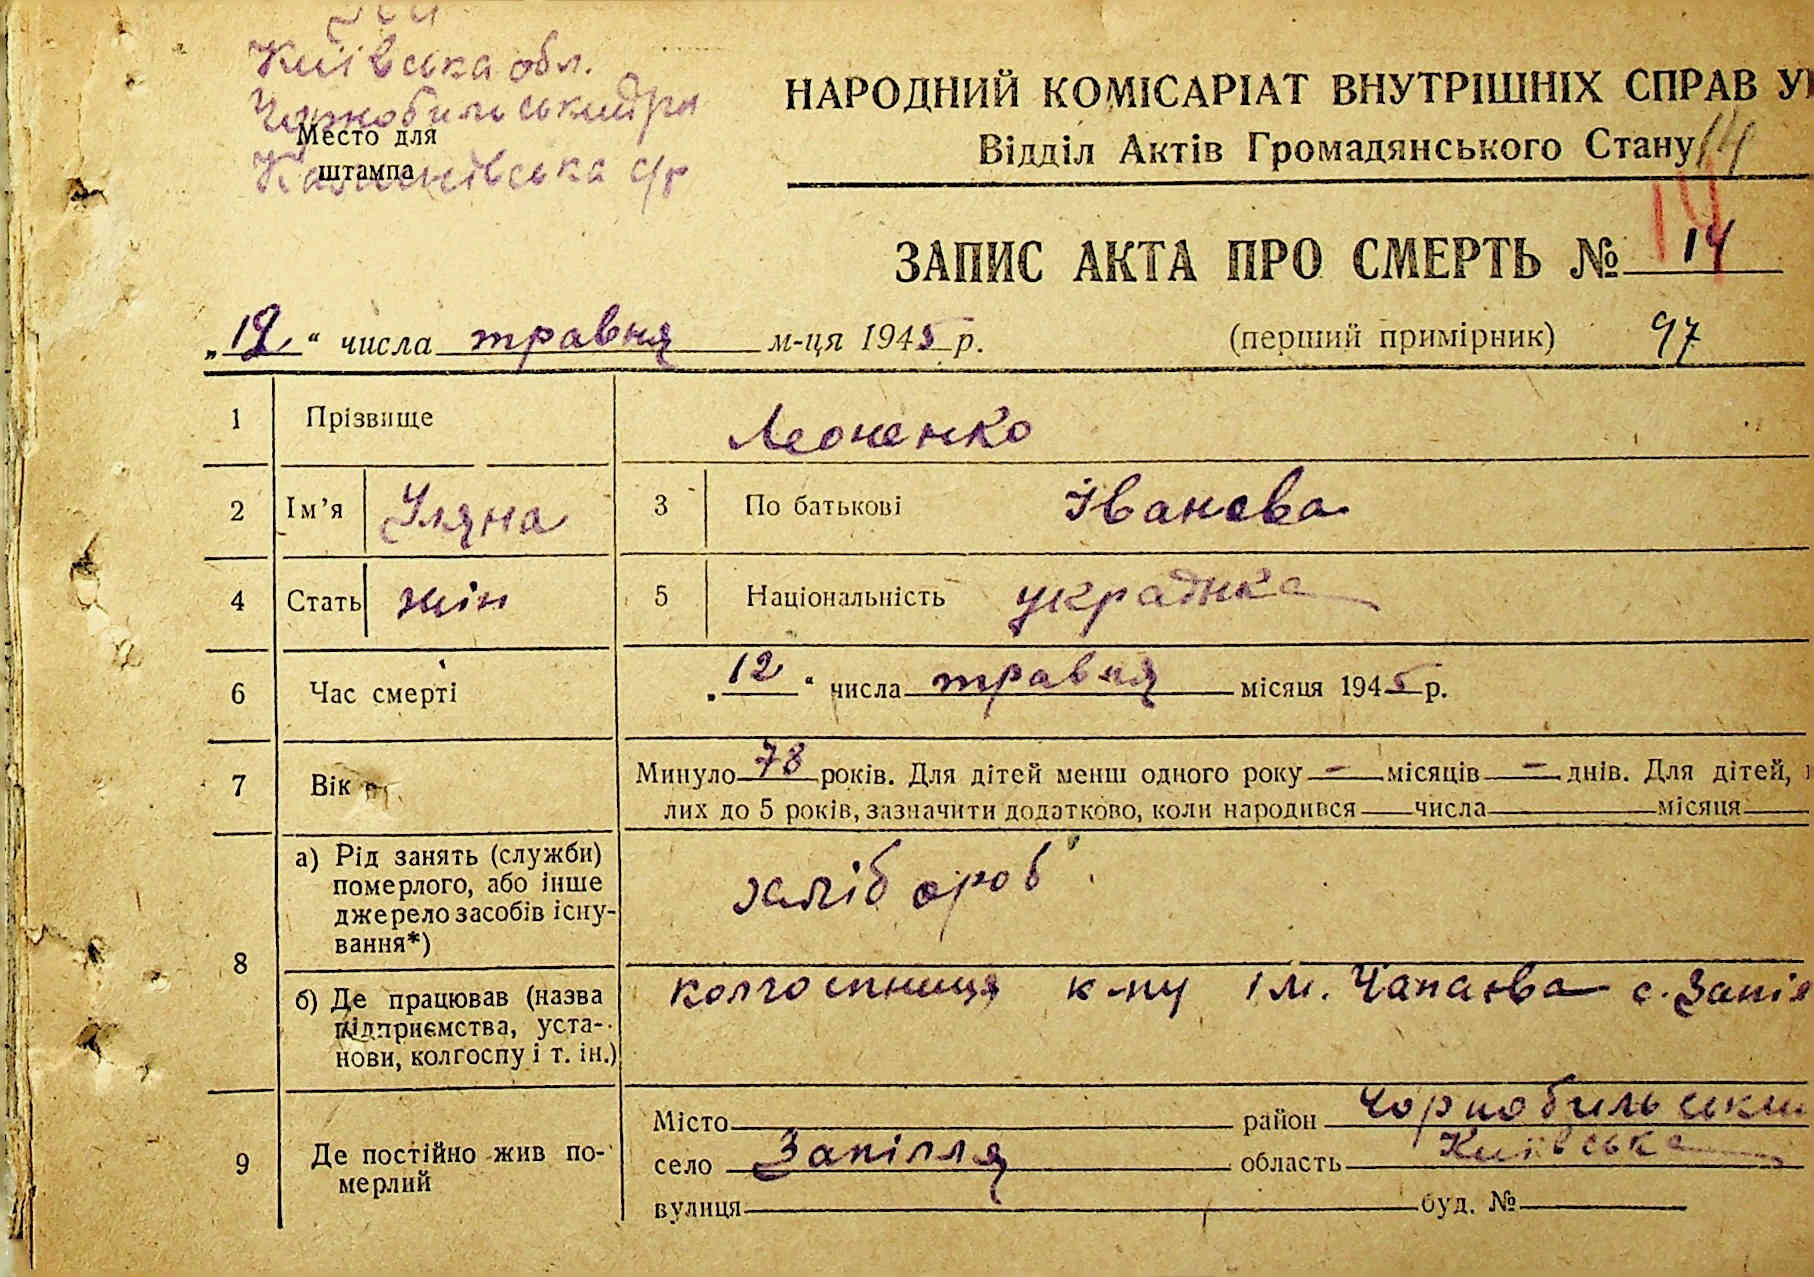 Київська обл.
Чорнобильський рн
Место для
штампа
НАРОДНИЙ КОМІСАРІАТ ВНУТРІШНІХ СПРАВ
Відділ Актів Громадянського Стану
ЗАПИС АКТА ПРО СМЕРТЬ № 14
„12“ числа травня м-ця 1945 р. (перший примірник) 97
1 Прізвище Леоненко
2 Ім'я Уляна 3 По батькові Іванєва
4 Стать жін 5 Національність українка
6 Час смерті „12“ числа травня місяця 1945 р.
7 Вік Минуло 78 років. Для дітей менш одного року – місяців – днів. Для дітей,
лих до 5 років, зазначити додатково, коли народився числа місяця
8 а) Рід занять (служби)
померлого, або інше
джерело засобів існу-
вання*) хлібороб
б) Де працював (назва
підприємства, уста-
нови, колгоспу і т. ін.) колгоспниця к-пу ім. Чапаєва с. Запіл
9 Де постійно жив по-
мерлий
Місто район Чорнобильськи
село Запілля область Київська
вулиця буд. №